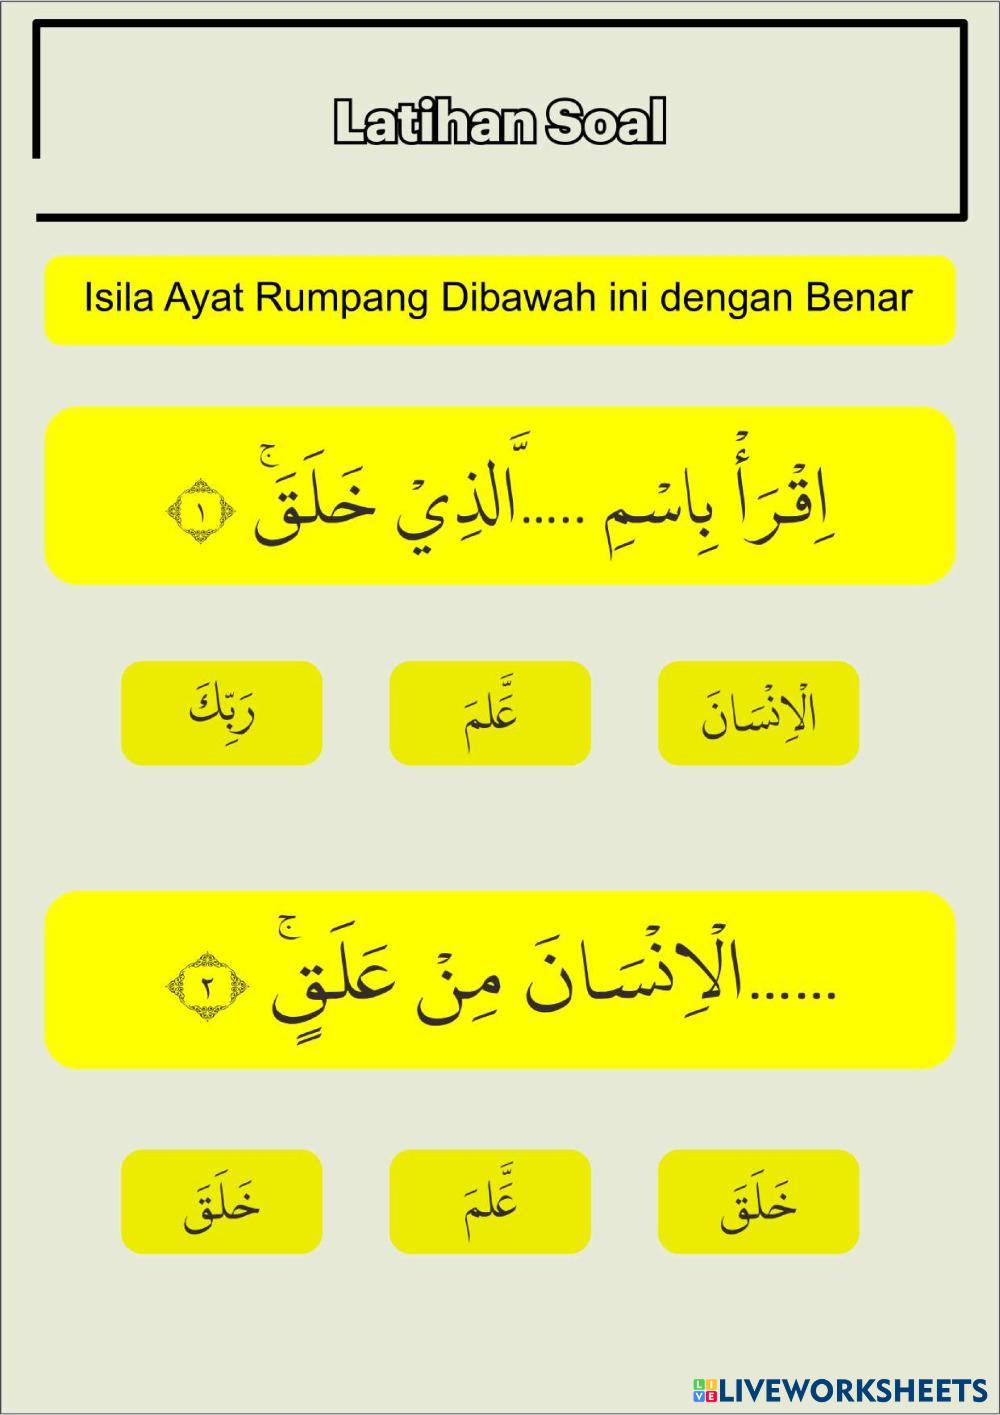 Latihan Soal
Isila Ayat Rumpang Dibawah ini dengan Benar
اِقْرَأْ بِاسْمِ .....الَّذِيْ خَلَقَۚ ١
الْاِنْسَانَ
عَلَّمَ
رَبِّكَ
......الْاِنْسَانَ مِنْ عَلَقٍۚ ٢
خَلَقَ
عَلَّمَ
خَلَقَ
LIVE LIVEWORKSHEETS